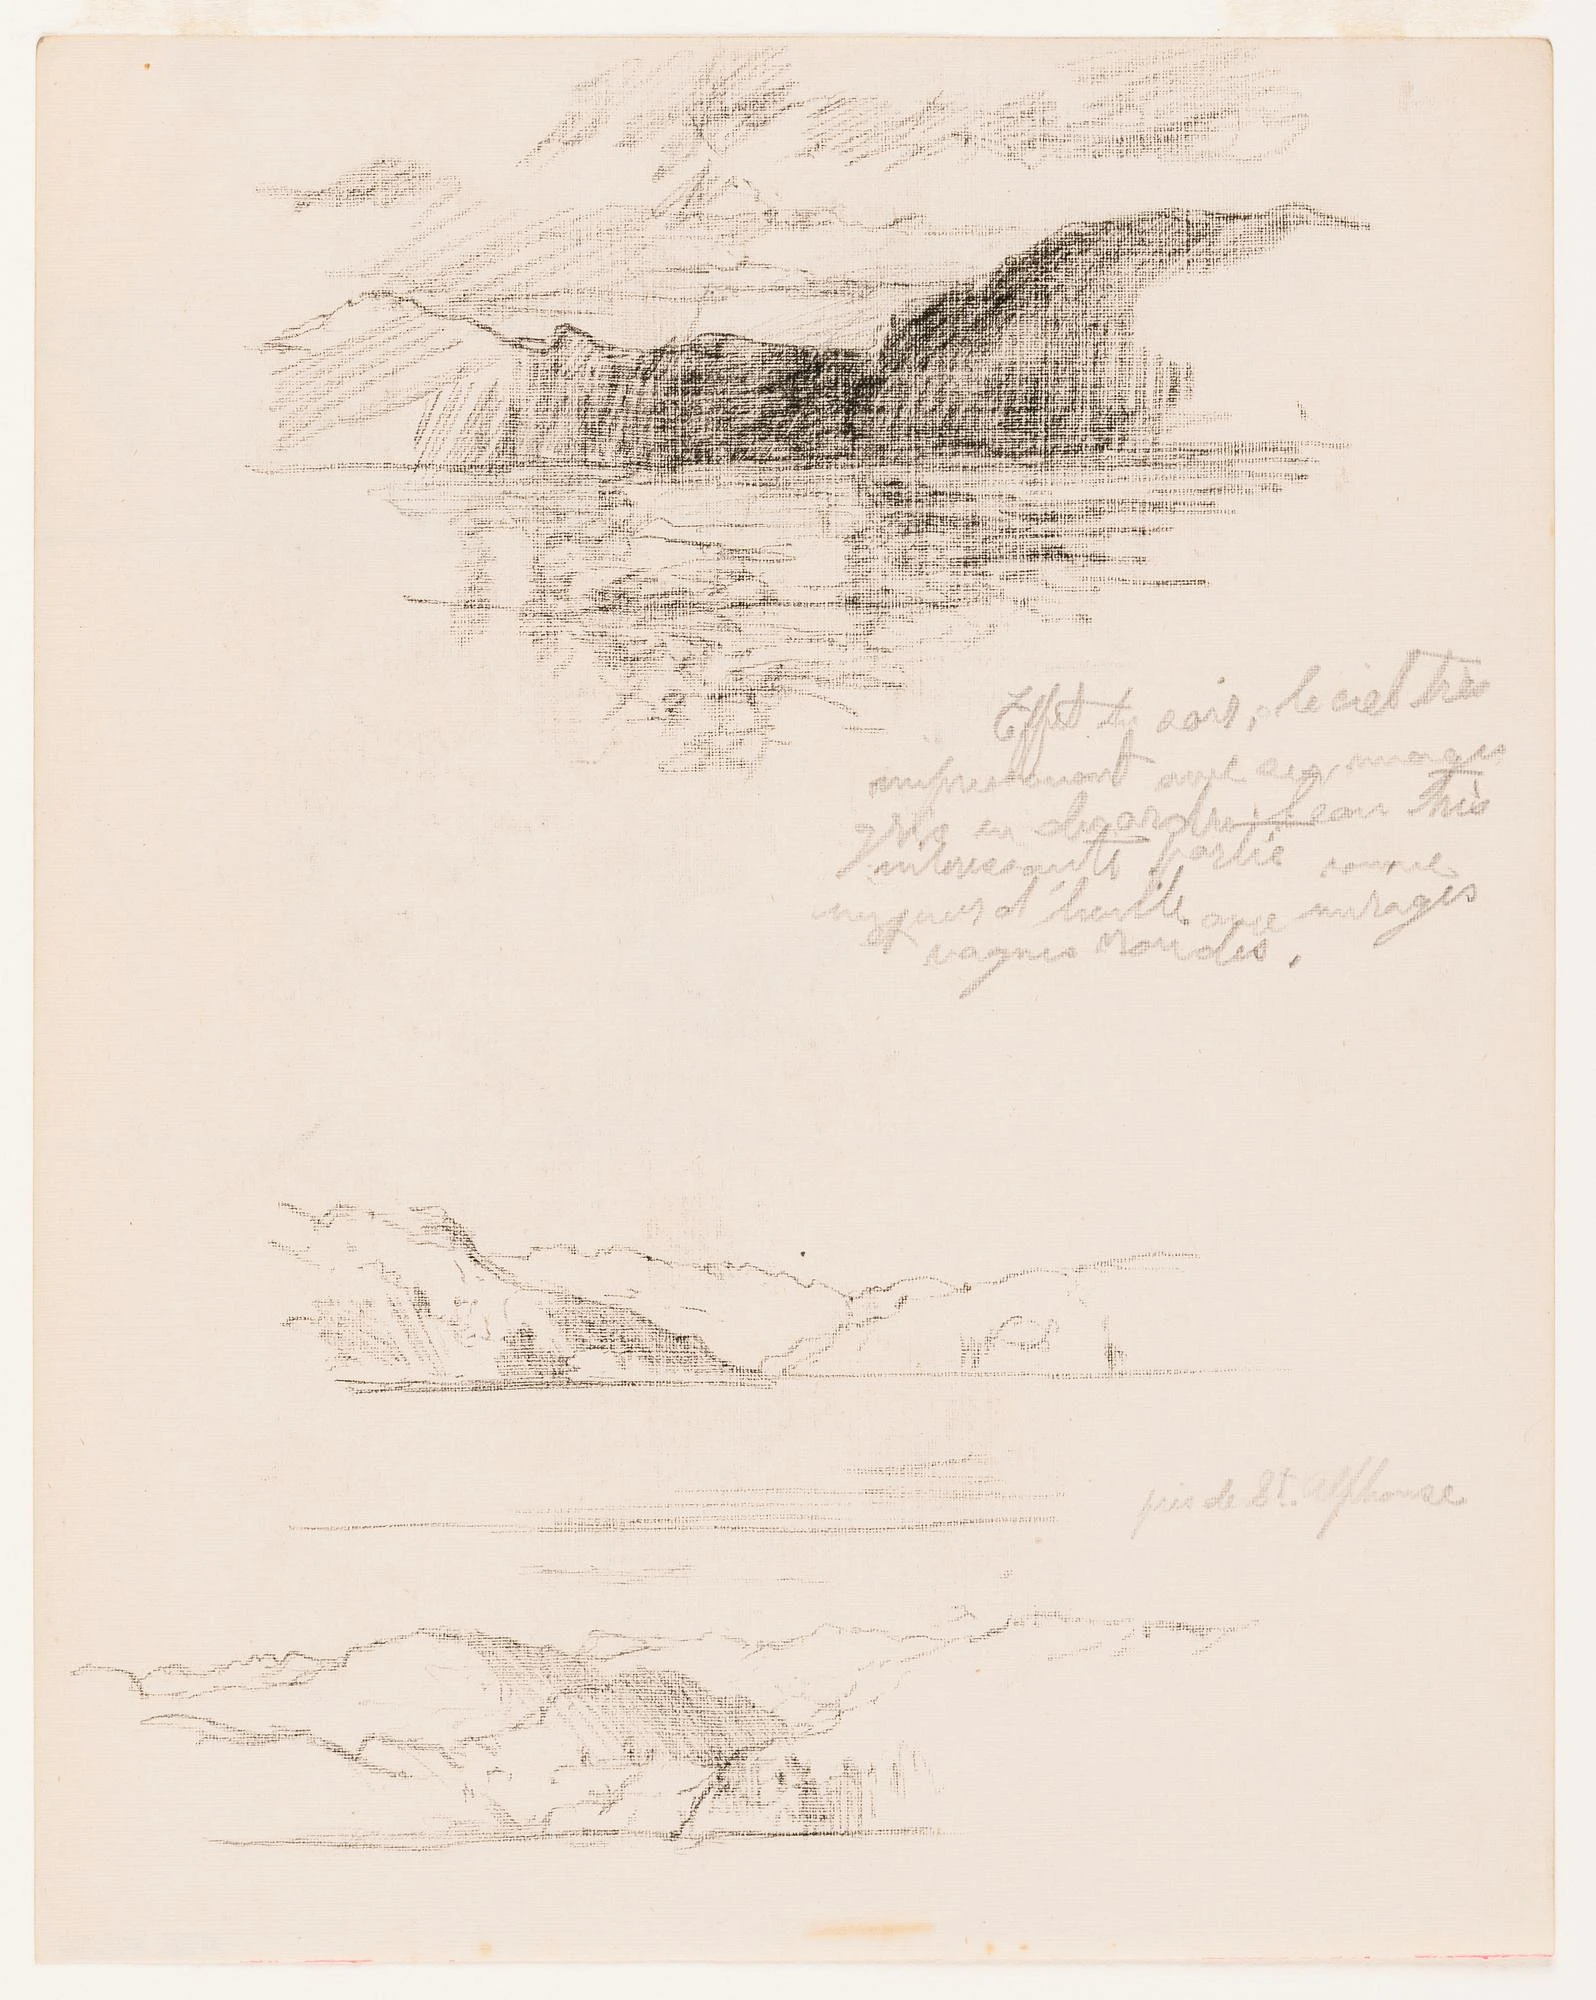 Effet du soir, le ciel très
impressionnant avec nuages
gris en désordre l'eau très
intéressante partie comme
d'huile avec mirages
et vagues rondes.
près de St. Alphonse